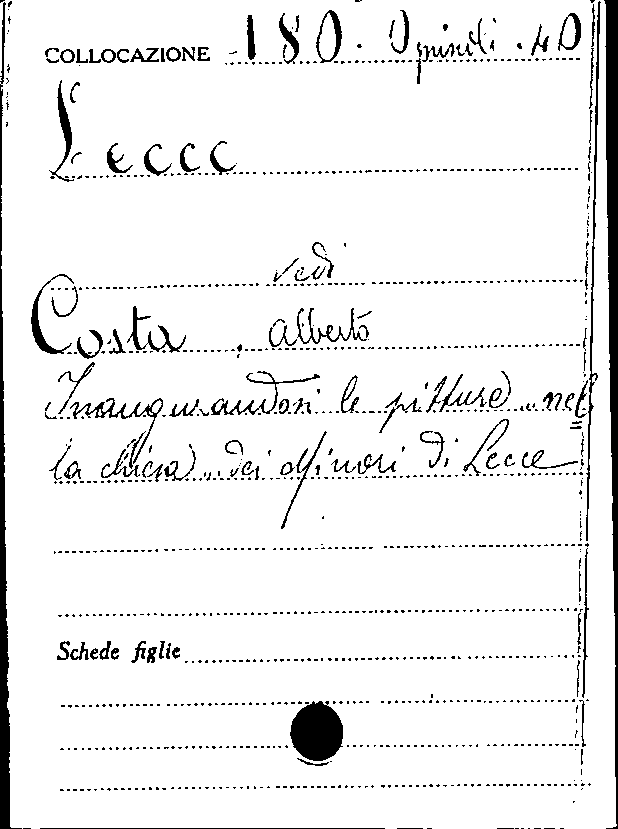 COLLOCAZIONE 180. Opuscoli .40
Lecce
vedi
Costa, Alberto
Inaugurandosi le pitture ... nel=
la chiesa ... dei Minori di Lecce
Schede figlie